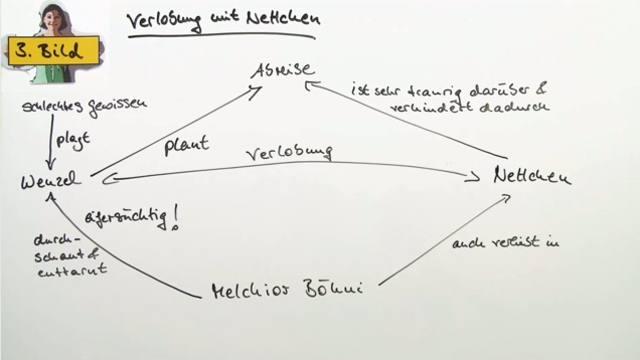 Verlobung mit Nettchen
3. Bild
Abreise
ist sehr traurig darüber &
verhindert dadurch
schlechtes gewissen
plagt
plant
Verlobung
Wenzel
Nettchen
eifersüchtig!
durch-
schaut &
enttarnt
auch verliebt in
Melchior Böhni